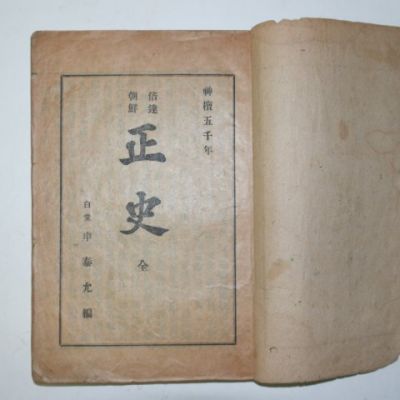 神檀五千年
倍達
朝鮮
正史
全
白堂 申泰允編